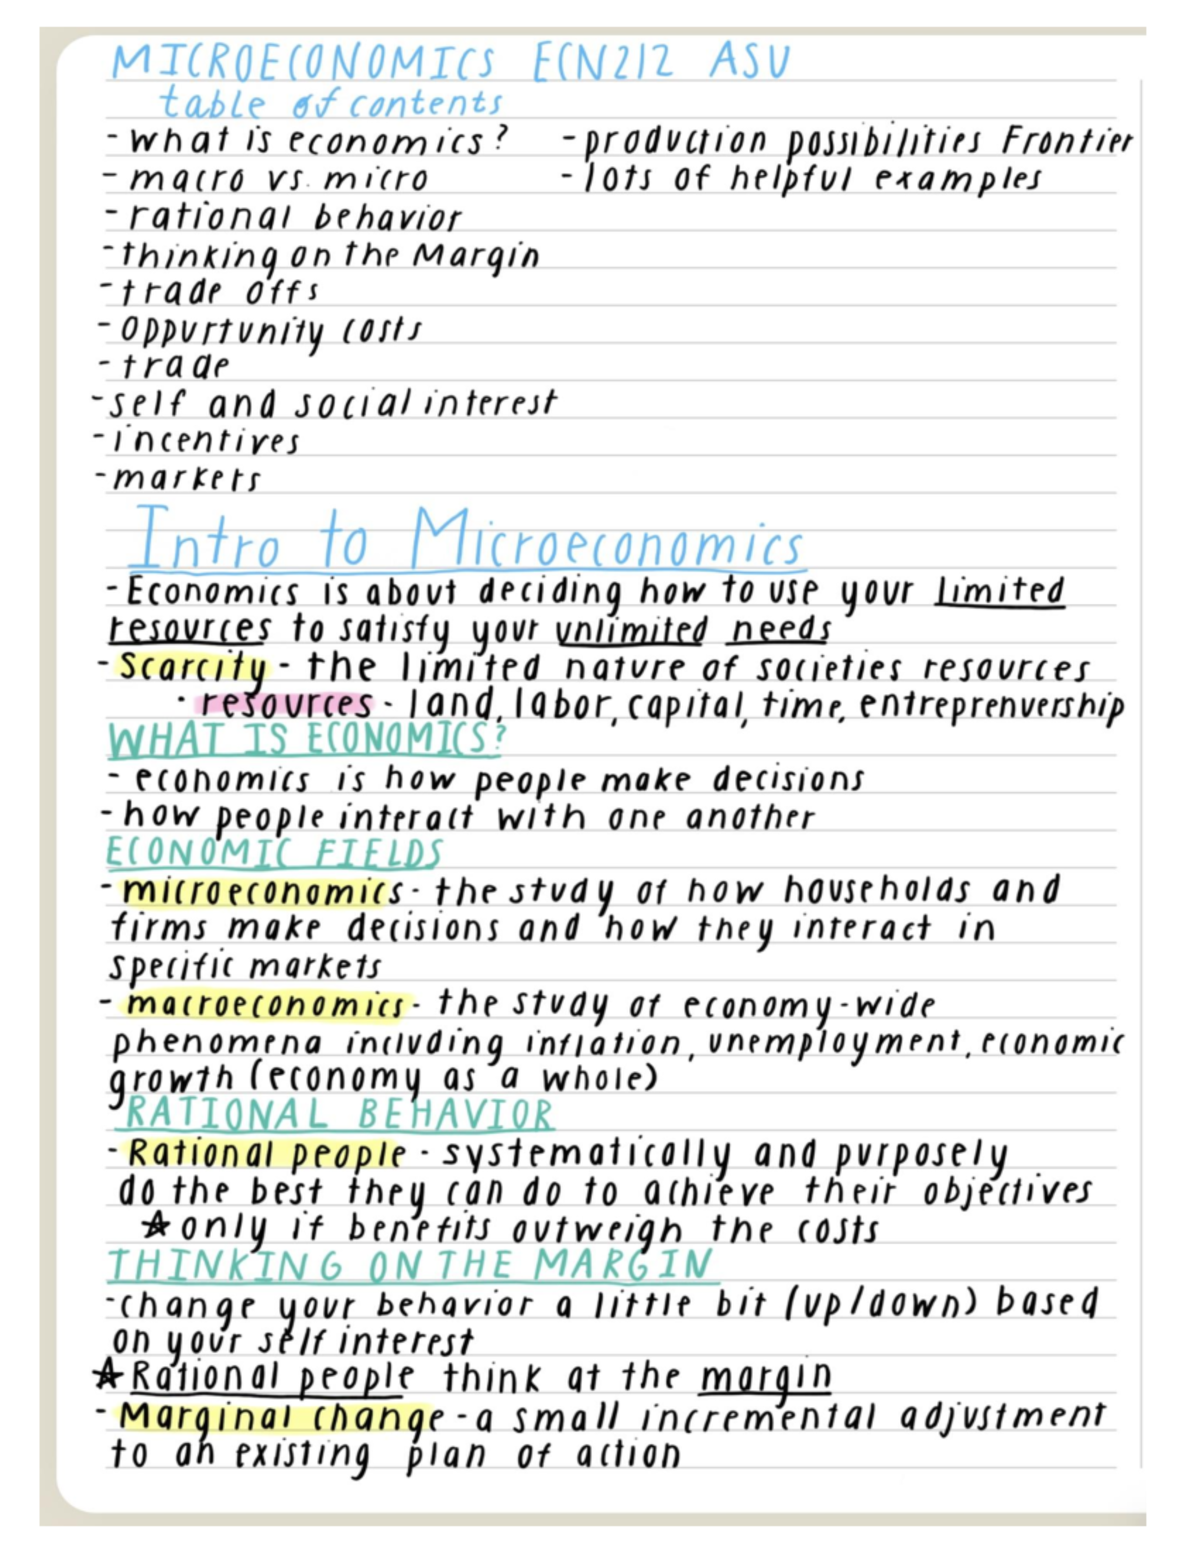 MICROECONOMICS ECN212 ASU
table of contents
- what is economics? - production possibilities Frontier
- macro vs. micro - lots of helpful examples
- rational behavior
- thinking on the Margin
- trade offs
- oppurtunity costs
- trade
- self and social interest
- incentives
- markets
Intro to Microeconomics
- Economics is about deciding how to use your limited
resources to satisfy your unlimited needs
- Scarcity - the limited nature of societies resources
· resources - land, labor, capital, time, entreprenvership
WHAT IS ECONOMICS?
- economics is how people make decisions
- how people interact with one another
ECONOMIC FIELDS
- microeconomics - the study of how households and
firms make decisions and how they interact in
specific markets
- macroeconomics - the study of economy-wide
phenomena including inflation, unemployment, economic
growth (economy as a whole)
RATIONAL BEHAVIOR
- Rational people - systematically and purposely
do the best they can do to achieve their objectives
☆ only if benefits outweigh the costs
THINKING ON THE MARGIN
- change your behavior a little bit (up/down) based
on your self interest
☆ Rational people think at the margin
- Marginal change - a small incremental adjustment
to an existing plan of action